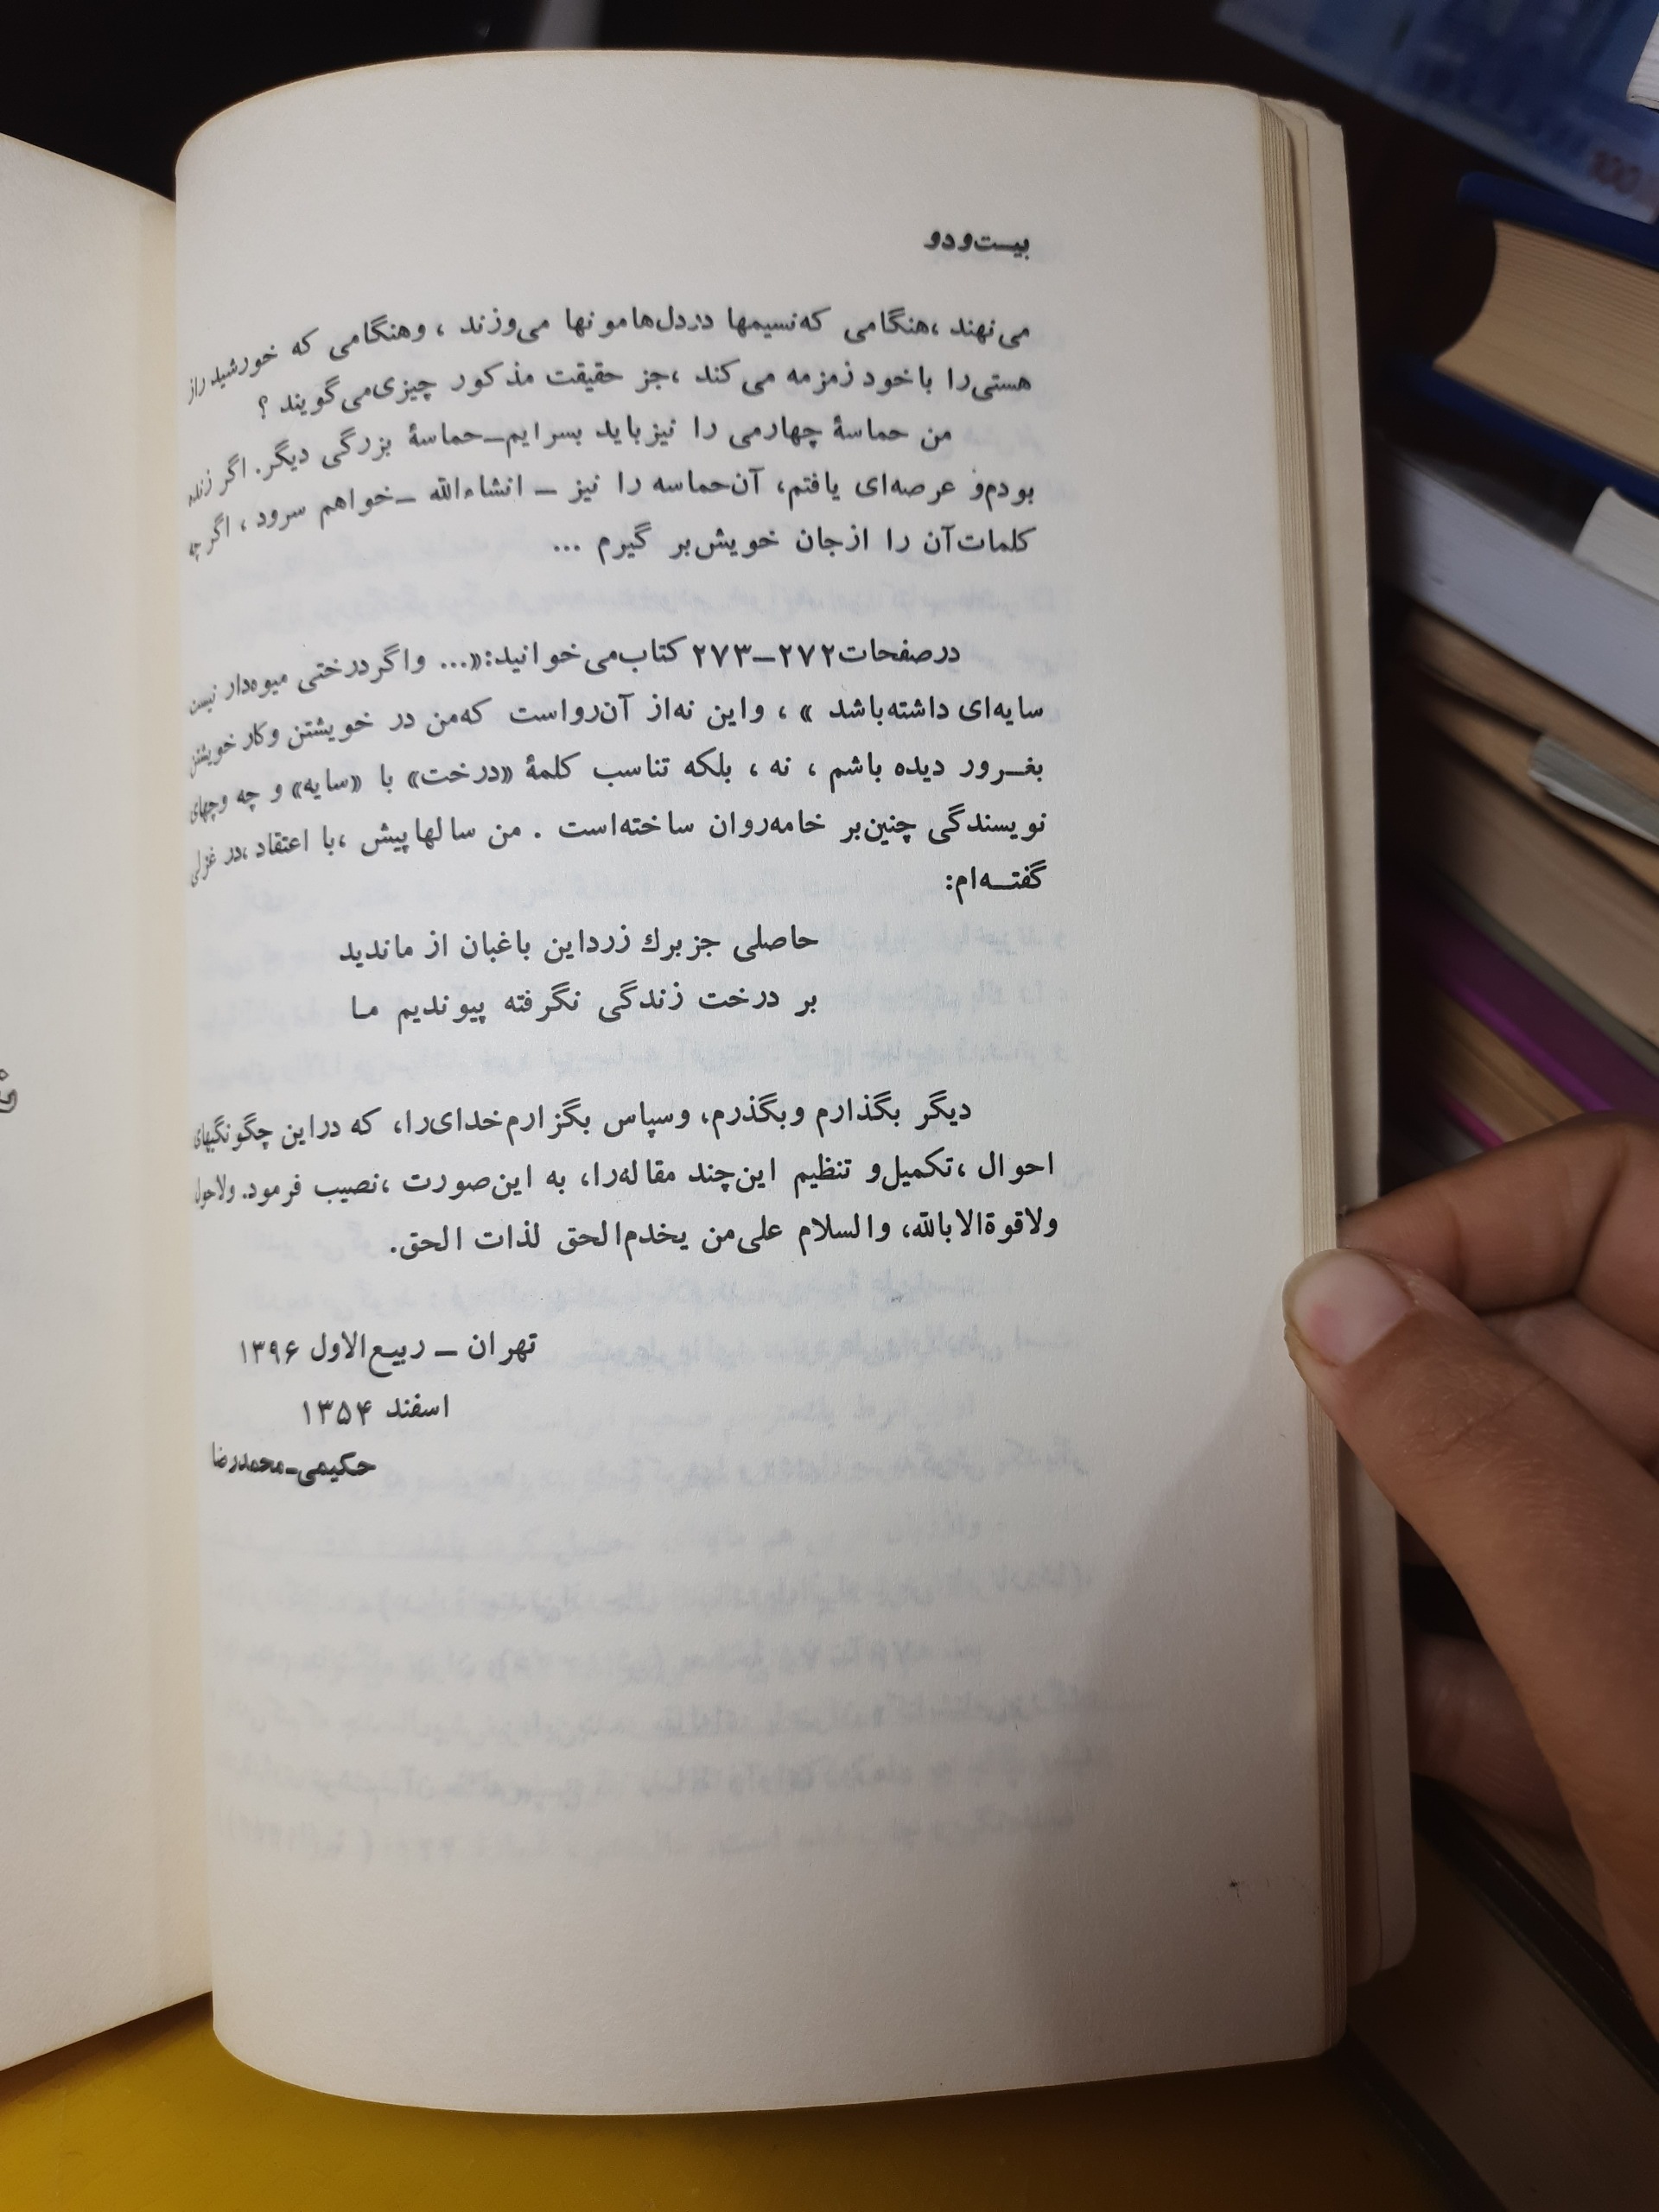 بیست‌و‌دو
می‌نهند ،هنگامی که‌نسیمها در‌دل‌هامونها می‌وزند ، وهنگامی که خورشید راز
هستی‌را باخود زمزمه می‌کند ،جز حقیقت مذکور چیزی‌می‌گویند ؟
من حماسهٔ چهارمی را نیزباید بسرایم–حماسهٔ بزرگی دیگر. اگر زنده
بودم‌و عرصه‌ای یافتم، آن‌حماسه را نیز – انشاءالله –خواهم سرود ، اگرچه
کلمات‌آن را ازجان خویش‌بر گیرم ...
درصفحات۲۷۲–۲۷۳ کتاب‌می‌خوانید:«... واگردرختی میوه‌دار نیست
سایه‌ای داشته‌باشد » ، واین نه‌از آن‌رواست که‌من در خویشتن وکار خویشتن
بغـرور دیده باشم ، نه ، بلکه تناسب کلمهٔ «درخت» با «سایه» و چه وچهای
نویسندگی چنین‌بر خامه‌روان ساخته‌است . من سالهاپیش ،با اعتقاد ،در غزلی
گفتـه‌ام:
حاصلی جزبرك زرداین باغبان از ماندید
بر درخت زندگی نگرفته پیوندیم ما
دیگر بگذارم وبگذرم، وسپاس بگزارم‌خدای‌را، که دراین چگونگیهای
احوال ،تکمیل‌و تنظیم این‌چند مقاله‌را، به این‌صورت ،نصیب فرمود. ولاحول
ولاقوةالابالله، والسلام علی‌من یخدم‌الحق لذات الحق.
تهران – ربیع‌الاول ۱۳۹۶
اسفند ۱۳۵۴
حکیمی–محمدرضا